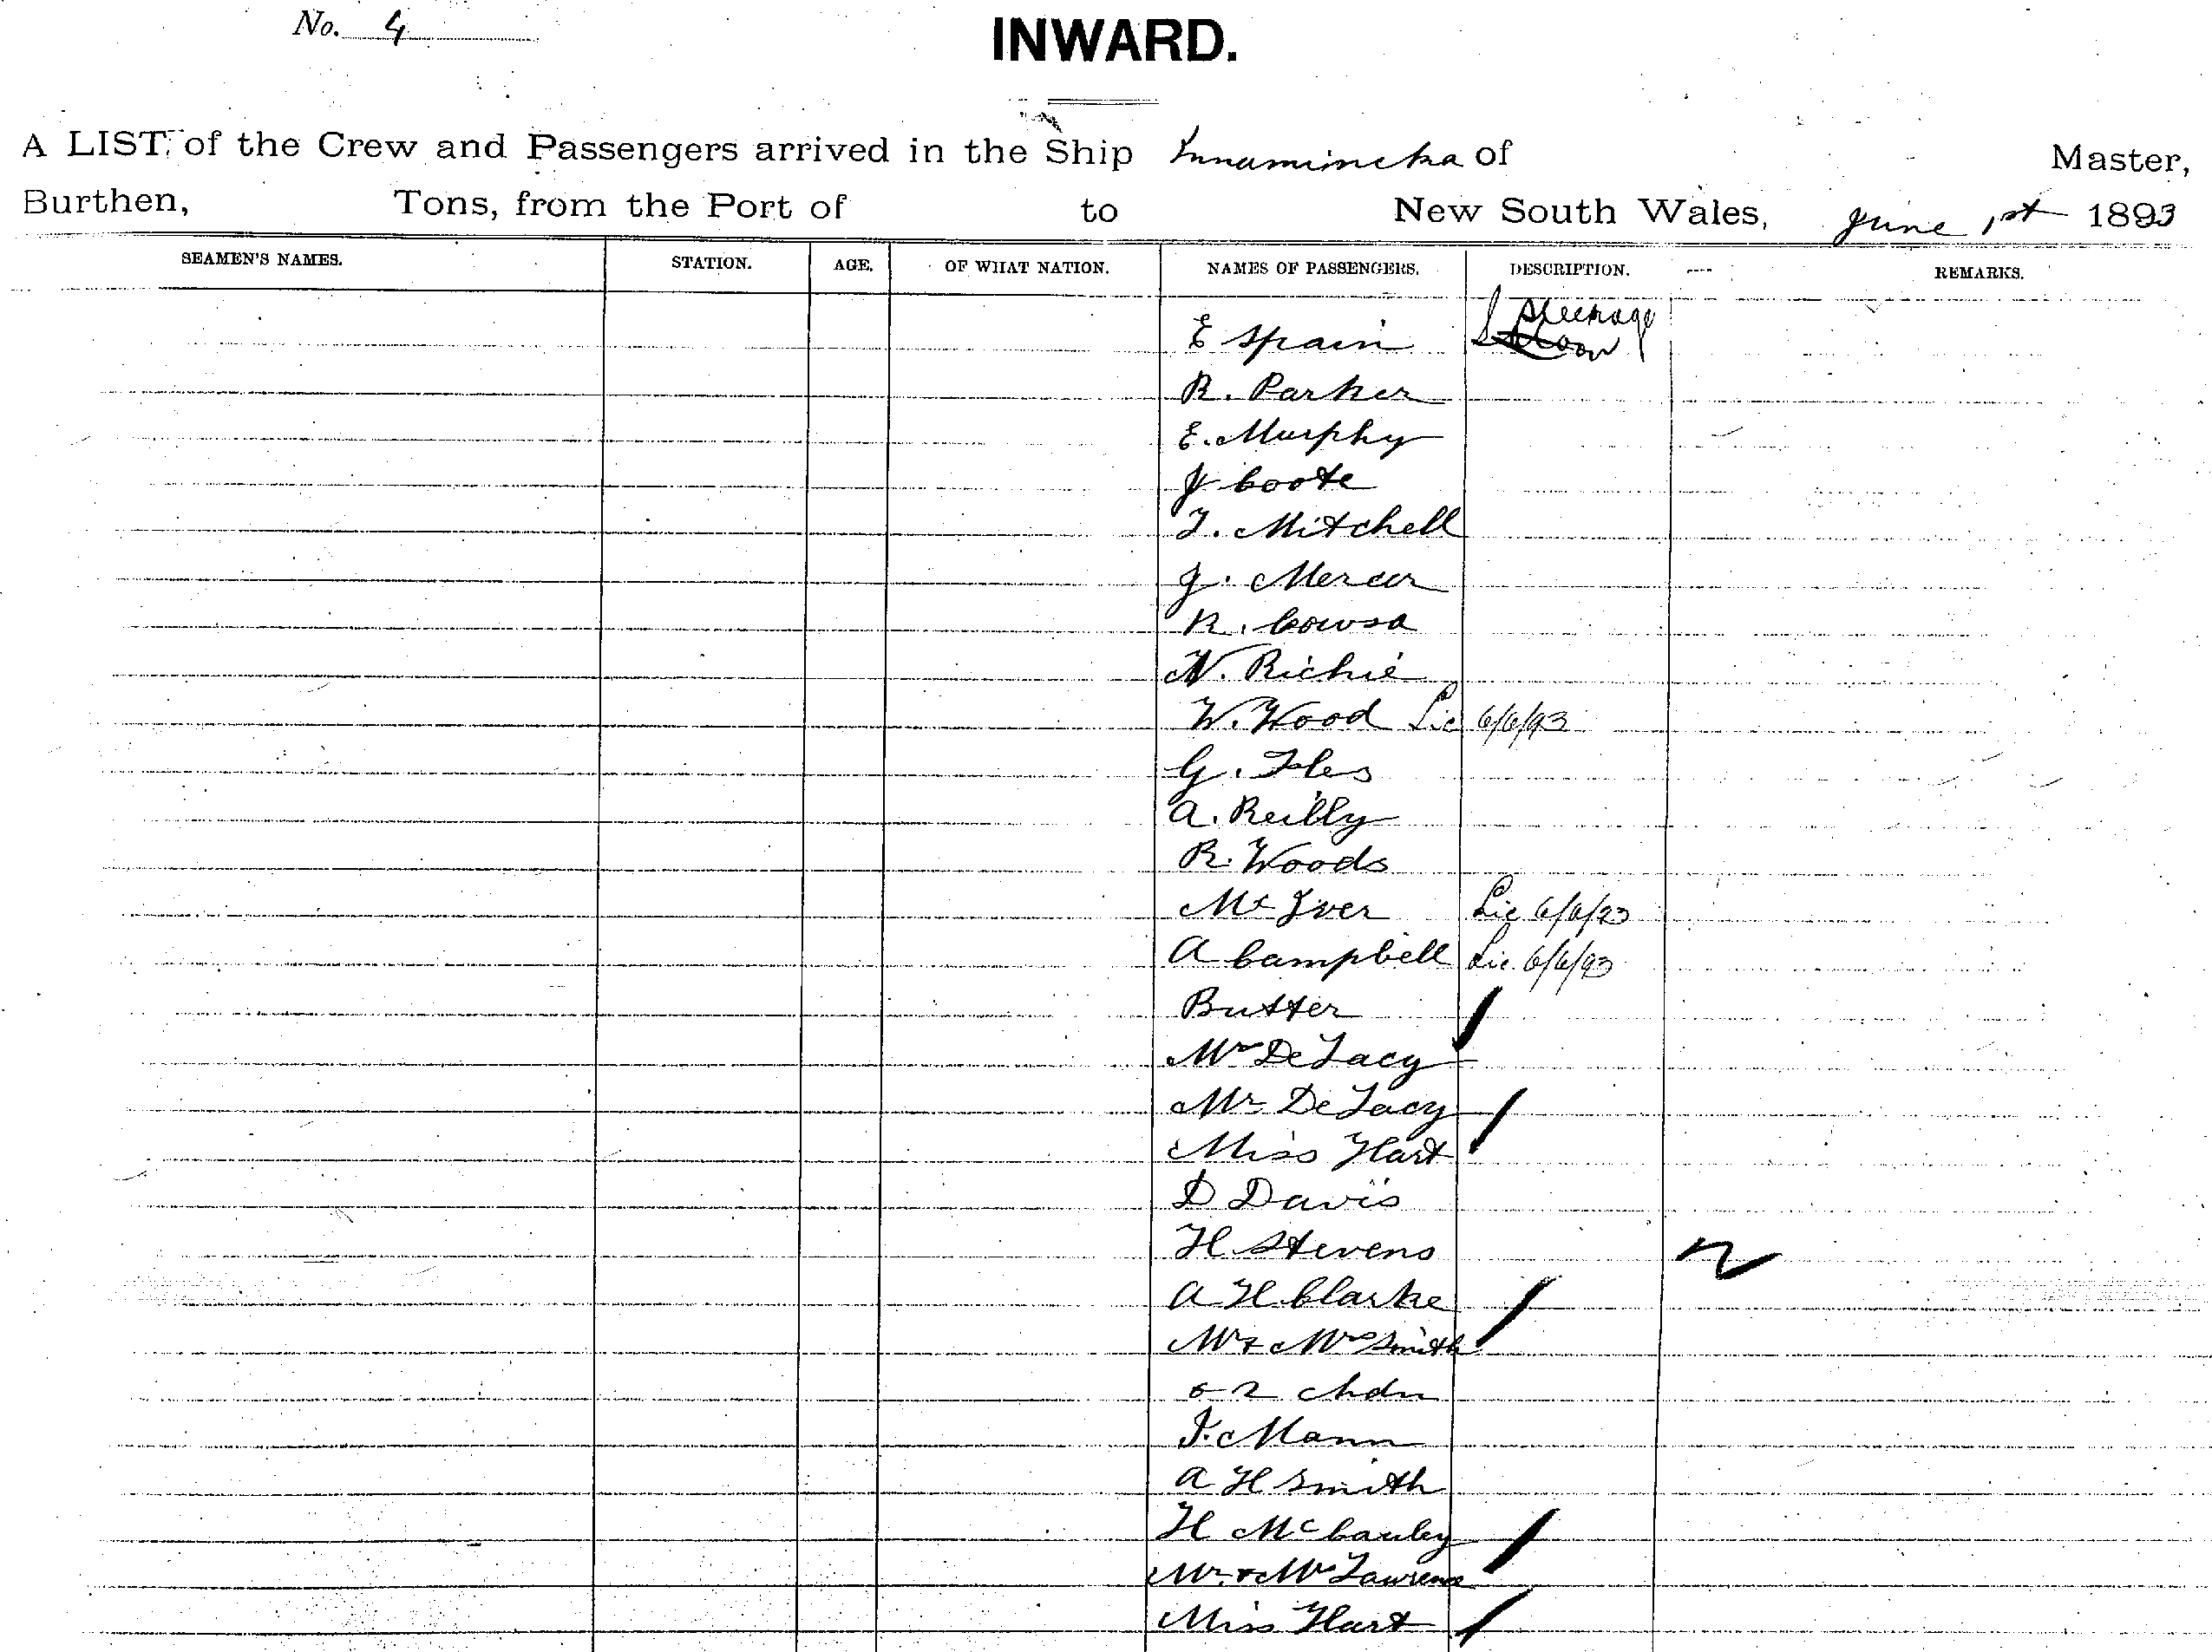 No. 4
INWARD.
A LIST of the Crew and Passengers arrived in the Ship Innamincka of Master,
Burthen, Tons, from the Port of to New South Wales, June 1st 1893
SEAMEN'S NAMES. STATION. AGE. OF WHAT NATION. NAMES OF PASSENGERS. DESCRIPTION. REMARKS.
Steerage
E Spain Saloon
R. Parker
E. Murphy
J Coote
T. Mitchell
J. Mercer
R. Cowsa
N. Richie
W. Wood Lic 6/6/93
G. Iles
A. Reilly
R. Woods
Mc Iver Lic 6/6/93
A Campbell Lic. 6/6/93
Butter
Mrs De Lacy
Mr De Lacy
Miss Hart
D Davis
H Stevens
A H Clarke
Mr & Mrs Smith
& 2 chdn
F. Mann
A H Smith
H McCauley
Mr. & Mrs Lawrence
Miss Hart